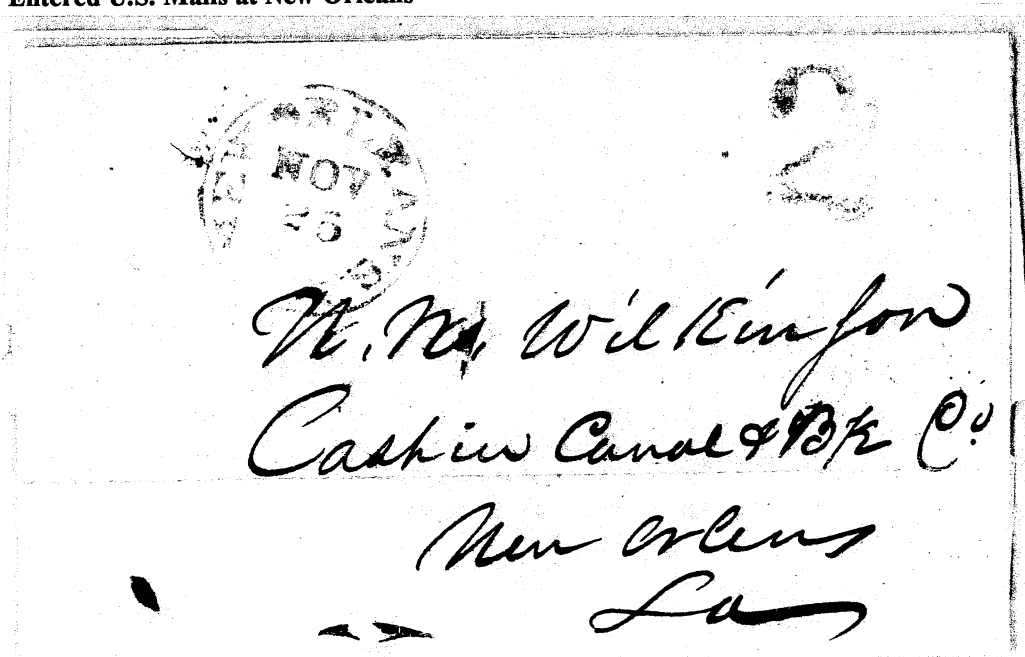 Entered U.S. Mails at New Orleans
NEW ORLEANS
NOV
26
2
N. M. Wilkinson
Cashier Canal & Bk Co.
New Orleans
La